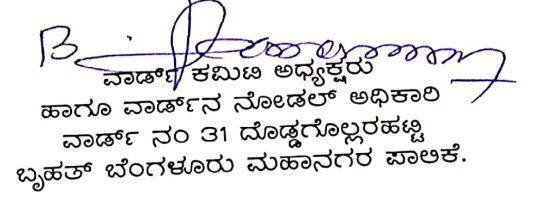 ವಾರ್ಡ್ ಕಮಿಟಿ ಅಧ್ಯಕ್ಷರು
ಹಾಗೂ ವಾರ್ಡ್‌ನ ನೋಡಲ್ ಅಧಿಕಾರಿ
ವಾರ್ಡ್ ನಂ 31 ದೊಡ್ಡಗೊಲ್ಲರಹಟ್ಟಿ
ಬೃಹತ್ ಬೆಂಗಳೂರು ಮಹಾನಗರ ಪಾಲಿಕೆ.